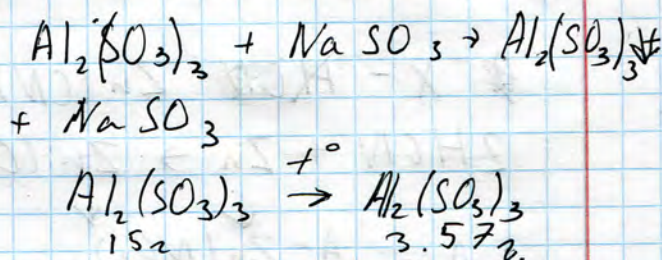 Al₂(SO₃)₃ + Na SO₃ → Al₂(SO₃)₃↓
+ Na SO₃
Al₂(SO₃)₃ –t°→ Al₂(SO₃)₃
15г 3.57г